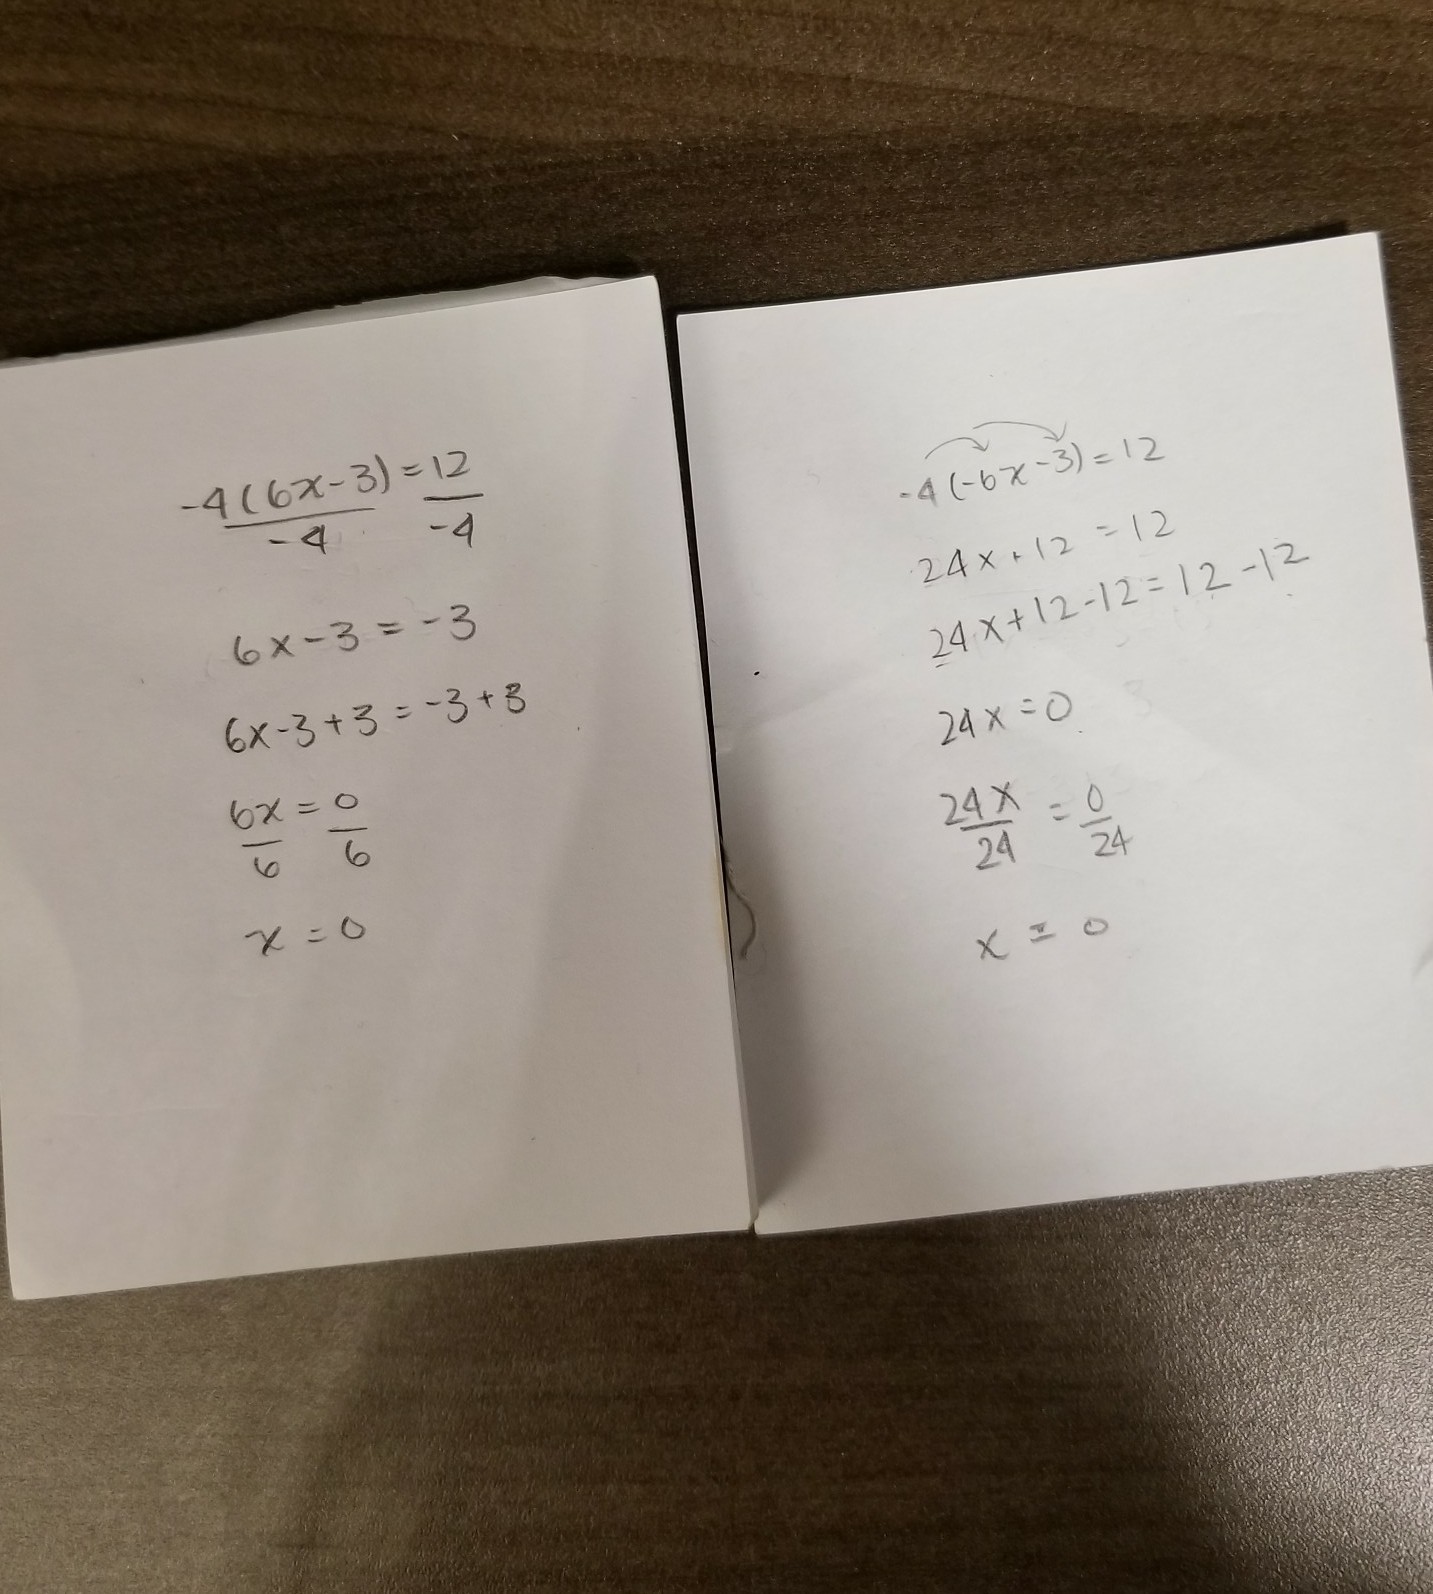 -4(6x-3) = 12
-4 -4
6x-3 = -3
6x-3+3 = -3+3
6x = 0
6 6
x = 0
-4(-6x-3) = 12
24x+12 = 12
24x+12-12 = 12-12
24x = 0
24x = 0
24 24
x = 0